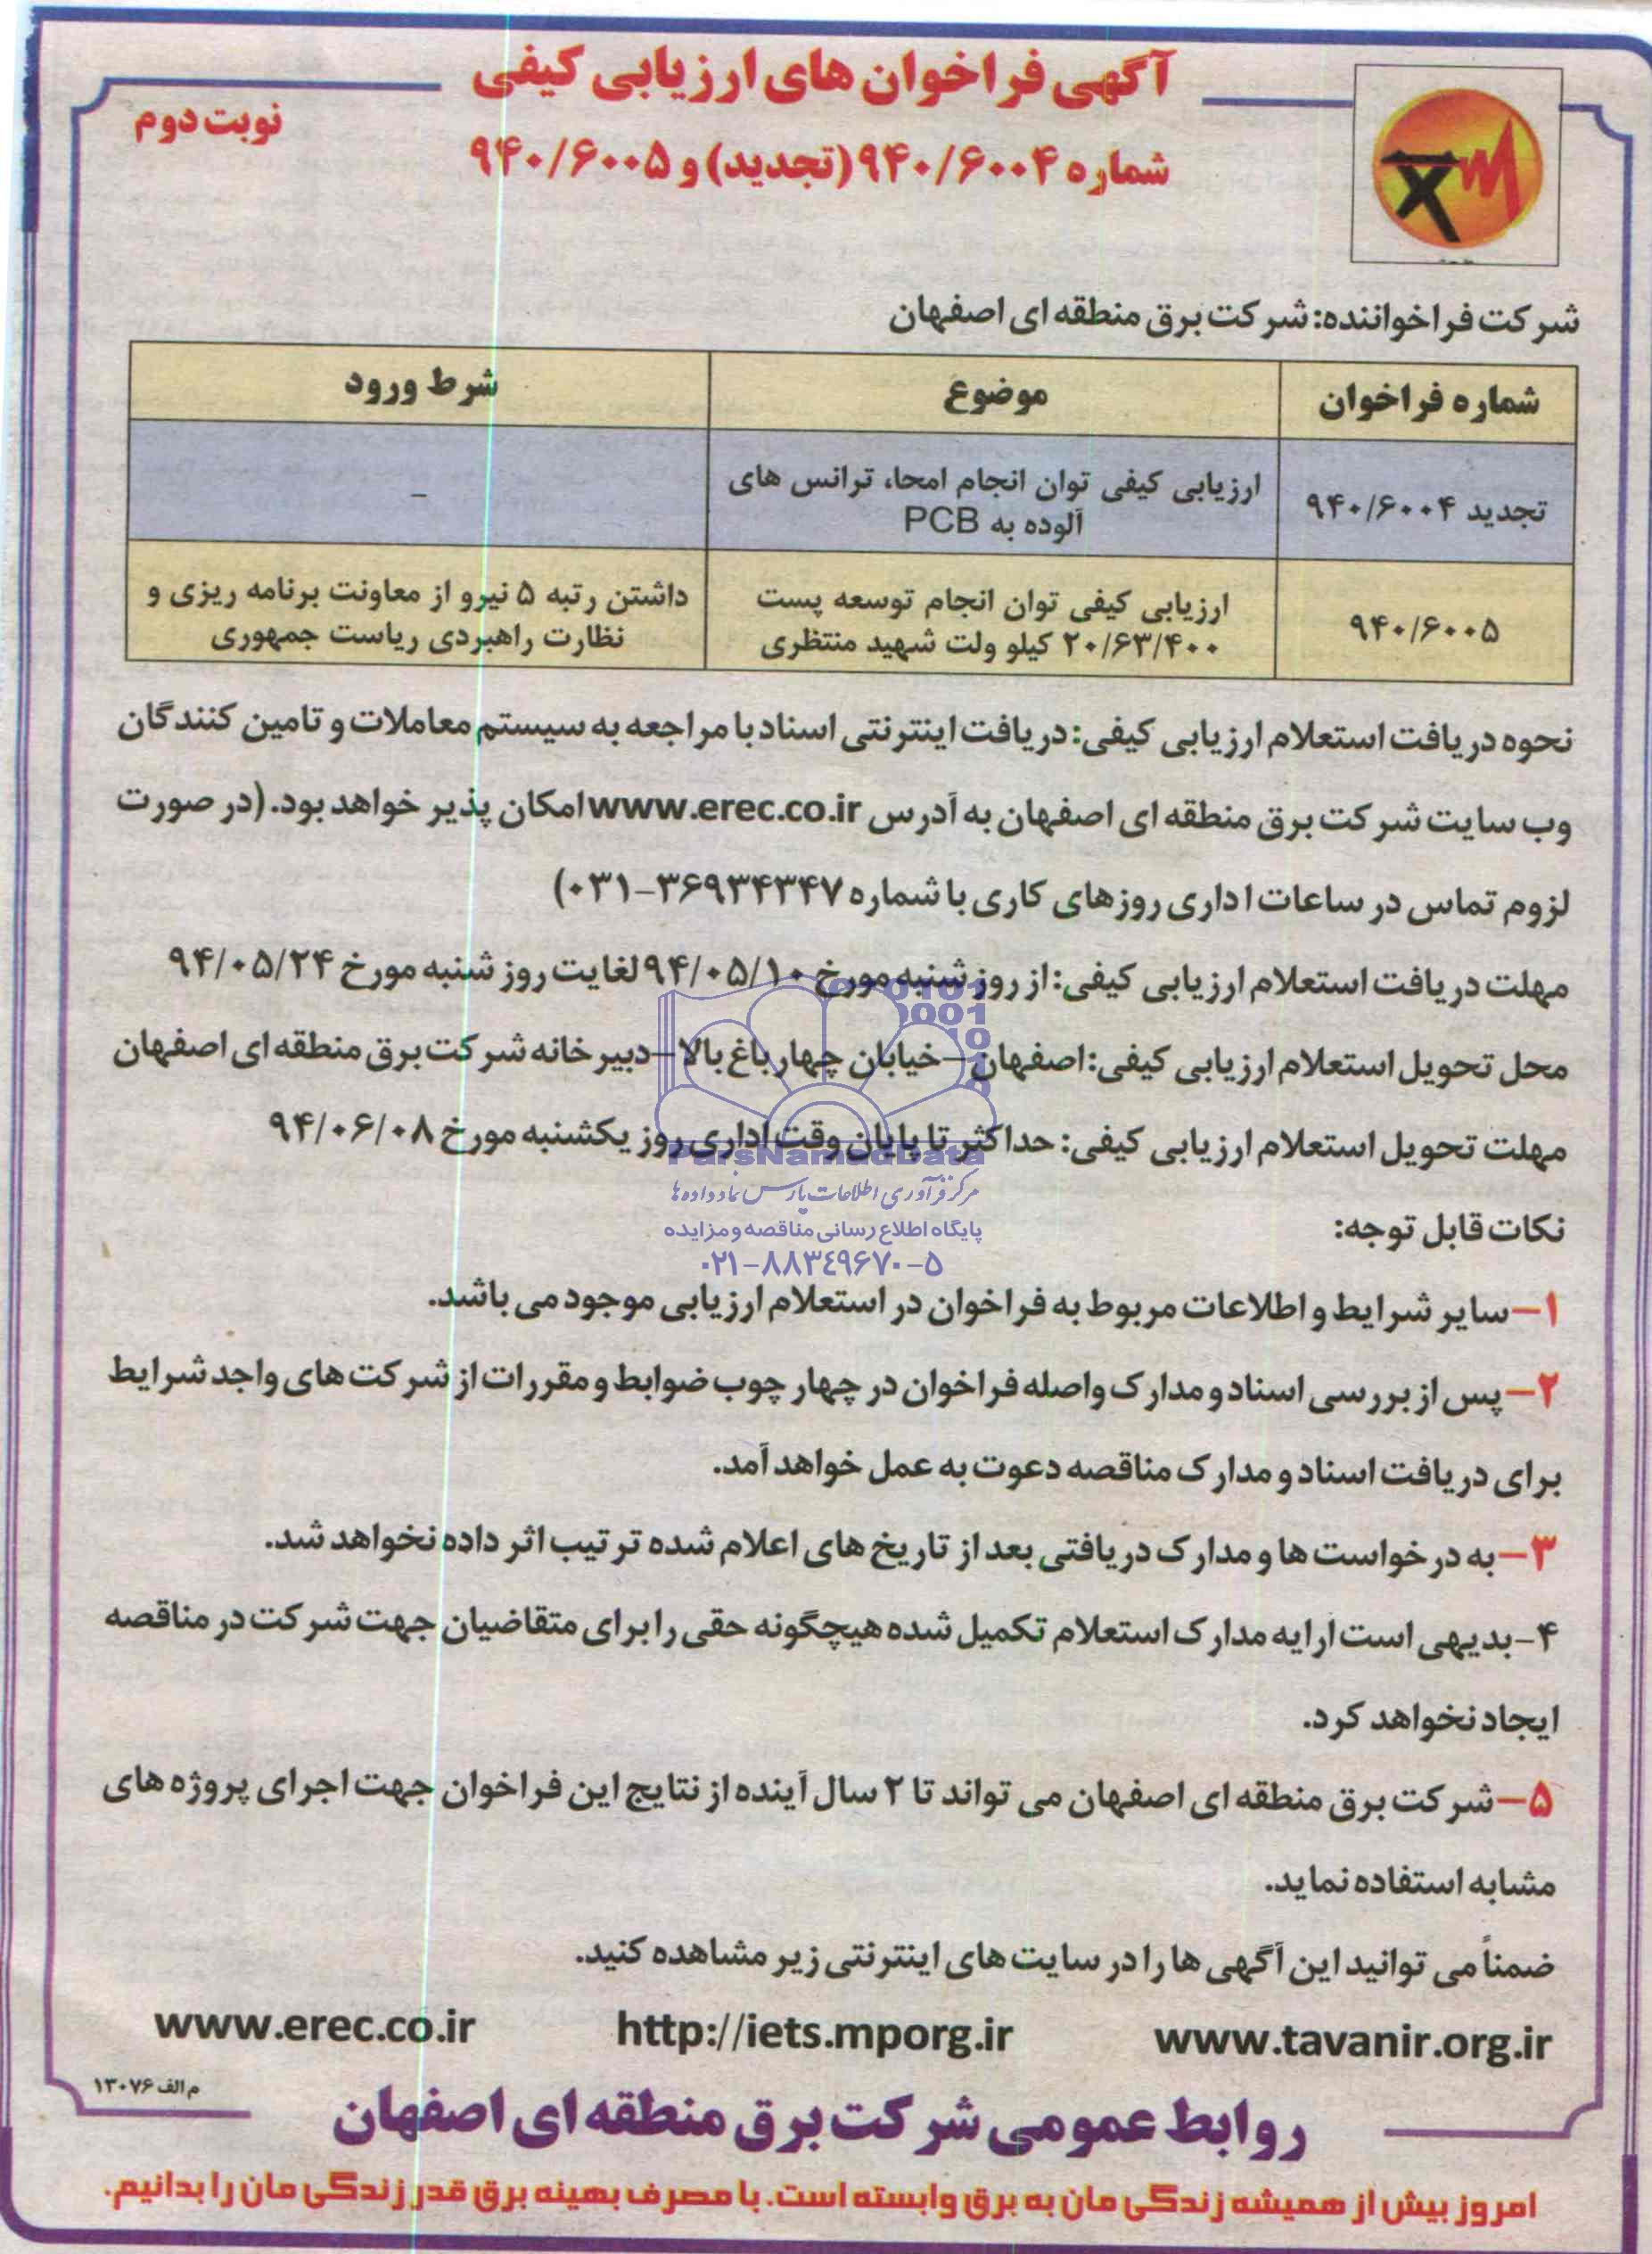 آگهی فراخوان های ارزیابی کیفی
نوبت دوم
شماره ۹۴۰/۶۰۰۴ (تجدید) و ۹۴۰/۶۰۰۵
شرکت فراخواننده: شرکت برق منطقه ای اصفهان
شماره فراخوان موضوع شرط ورود
تجدید ۹۴۰/۶۰۰۴ ارزیابی کیفی توان انجام امحاء ترانس های –
آلوده به PCB
۹۴۰/۶۰۰۵ ارزیابی کیفی توان انجام توسعه پست داشتن رتبه ۵ نیرو از معاونت برنامه ریزی و
۲۰/۶۳/۴۰۰ کیلو ولت شهید منتظری نظارت راهبردی ریاست جمهوری
نحوه دریافت استعلام ارزیابی کیفی: دریافت اینترنتی اسناد با مراجعه به سیستم معاملات و تامین کنندگان
وب سایت شرکت برق منطقه ای اصفهان به آدرس www.erec.co.ir امکان پذیر خواهد بود. (در صورت
لزوم تماس در ساعات اداری روزهای کاری با شماره ۳۶۹۳۴۳۴۷-۰۳۱)
مهلت دریافت استعلام ارزیابی کیفی: از روز شنبه مورخ ۹۴/۰۵/۱۰ لغایت روز شنبه مورخ ۹۴/۰۵/۲۴
محل تحویل استعلام ارزیابی کیفی: اصفهان – خیابان چهارباغ بالا – دبیرخانه شرکت برق منطقه ای اصفهان
مهلت تحویل استعلام ارزیابی کیفی: حداکثر تا پایان وقت اداری روز یکشنبه مورخ ۹۴/۰۶/۰۸
ParsNamadData
مرکز فرآوری اطلاعات پارس نماد داده ها
پایگاه اطلاع رسانی مناقصه و مزایده
۰۲۱-۸۸۳۴۹۶۷۰-۵
نکات قابل توجه:
۱- سایر شرایط و اطلاعات مربوط به فراخوان در استعلام ارزیابی موجود می باشد.
۲- پس از بررسی اسناد و مدارک واصله فراخوان در چهار چوب ضوابط و مقررات از شرکت های واجد شرایط
برای دریافت اسناد و مدارک مناقصه دعوت به عمل خواهد آمد.
۳- به درخواست ها و مدارک دریافتی بعد از تاریخ های اعلام شده ترتیب اثر داده نخواهد شد.
۴- بدیهی است ارایه مدارک استعلام تکمیل شده هیچگونه حقی را برای متقاضیان جهت شرکت در مناقصه
ایجاد نخواهد کرد.
۵- شرکت برق منطقه ای اصفهان می تواند تا ۲ سال آینده از نتایج این فراخوان جهت اجرای پروژه های
مشابه استفاده نماید.
ضمناً می توانید این آگهی ها را در سایت های اینترنتی زیر مشاهده کنید.
www.tavanir.org.ir http://iets.mporg.ir www.erec.co.ir
م الف ۱۳۰۷۶
روابط عمومی شرکت برق منطقه ای اصفهان
امروز بیش از همیشه زندگی مان به برق وابسته است. با مصرف بهینه برق قدر زندگی مان را بدانیم.